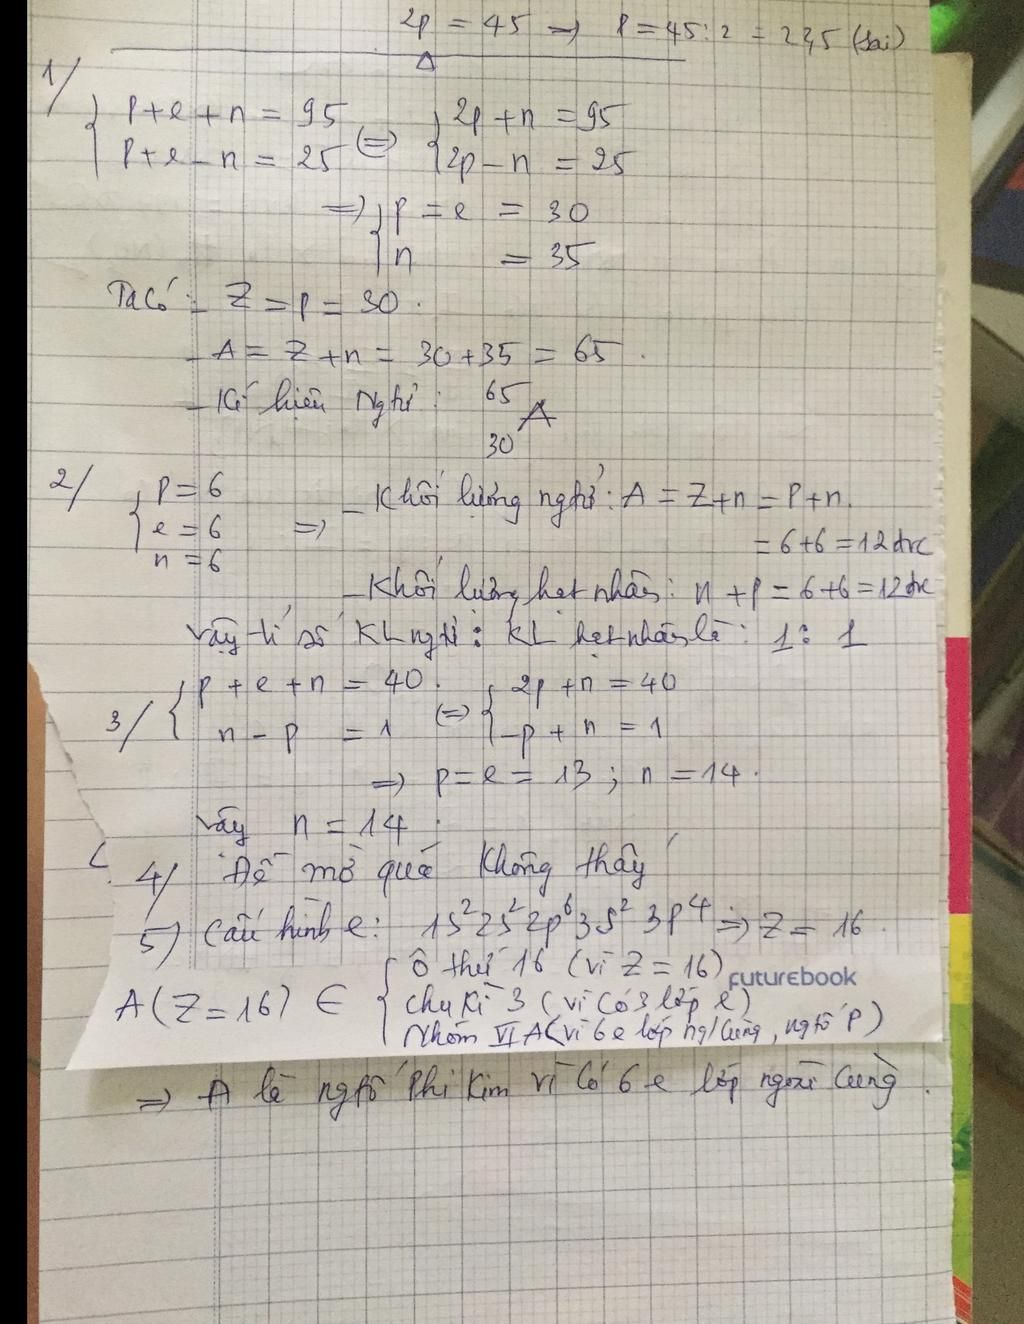 2p = 45 => P = 45:2 = 22,5 (sai)
1/
{ p+e+n = 95 <=> { 2p+n = 95
p+e-n = 25 2p-n = 25
=> { p = e = 30
n = 35
Ta có: - Z = p = 30.
- A = Z+n = 30+35 = 65.
- Kí hiệu Ngtử: 65
A
30
2/ { p = 6
e = 6 =>
n = 6
- Khối lượng ngtử: A = Z+n = P+n.
= 6+6 = 12 đvc
- Khối lượng hạt nhân: n+p = 6+6 = 12đvc
Vậy tỉ số KL ngtử : KL hạt nhân là: 1:1
3/ { p+e+n = 40. <=> { 2p+n = 40
n - p = 1 -p+n = 1
=> p = e = 13 ; n = 14.
Vậy n = 14.
4/ Đề mờ quá không thấy
5) Cấu hình e: 1s² 2s² 2p⁶ 3s² 3p⁴ => Z = 16.
A (Z=16) ∈ { Ô thứ 16 (vì Z = 16)
Chu Kì 3 (vì có 3 lớp e)
Nhóm VIA (vì 6e lớp ng/cùng, ngtố P)
futurebook
=> A là ngtố Phi Kim vì có 6e lớp ngoài cùng.